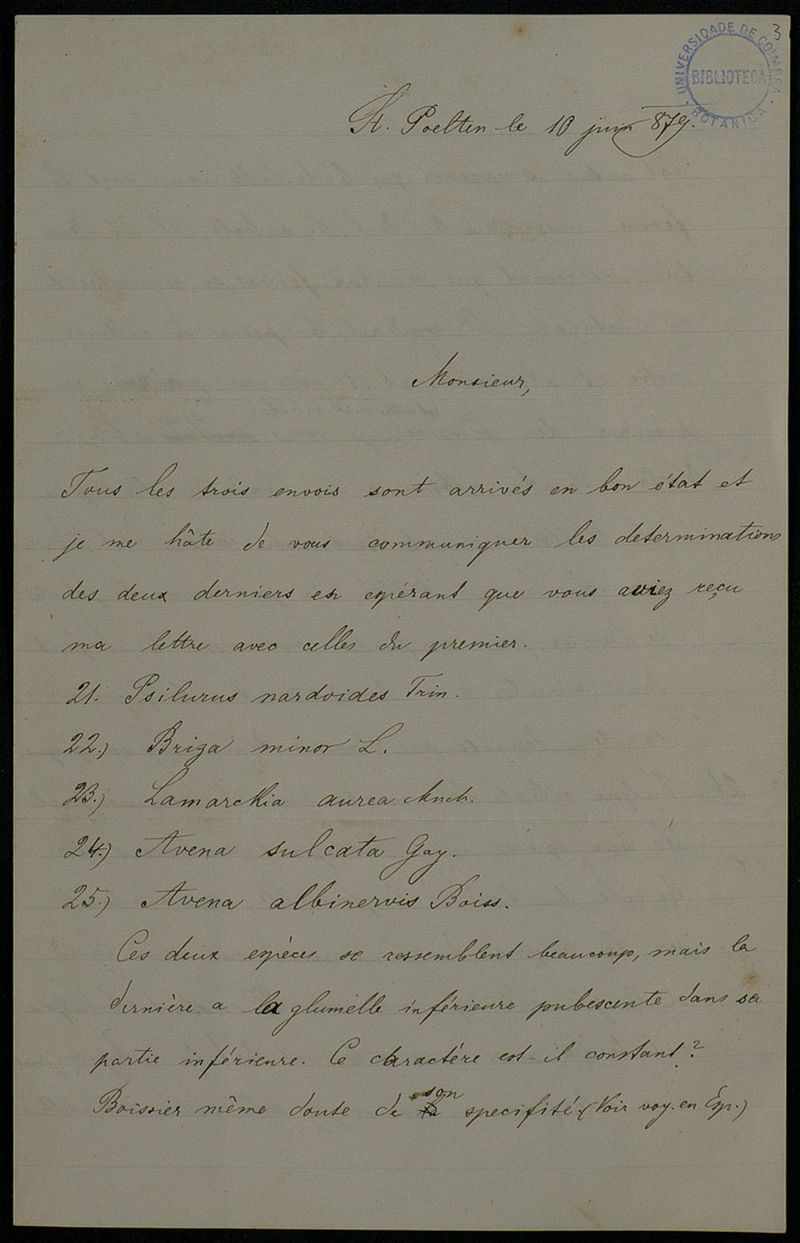 3
UNIVERSIDADE DE COIMBRA
BIBLIOTECA
BOTANICA
St. Poelten le 10 juin 879.
Monsieur,
Tous les trois envois sont arrivés en bon état et
je me hâte de vous communiquer les determinations
des deux derniers en espérant que vous aviez reçu
ma lettre avec celles du premier.
21. Psilurus nardoides Trin.
22.) Briza minor L.
23.) Lamarckia aurea Mnch.
24.) Avena sulcata Gay.
25.) Avena albinervis Boiss.
Ces deux espèces se ressemblent beaucoup, mais la
dernière a la glumelle inférieure pubescente dans sa
partie inférieure. Ce charactére est-il constant?
Boissier même doute de son specifité (Voir voy. en Esp.)